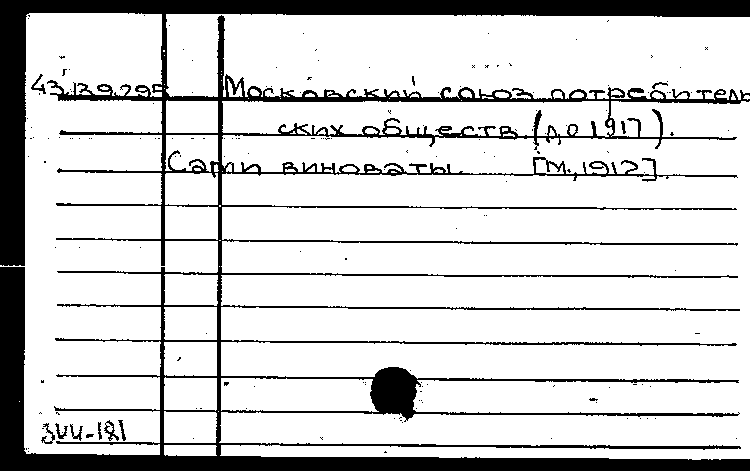 43.139.295 Московский союз потребитель
ских обществ (до 1917).
Сами виноваты. [М., 1912].
344-181